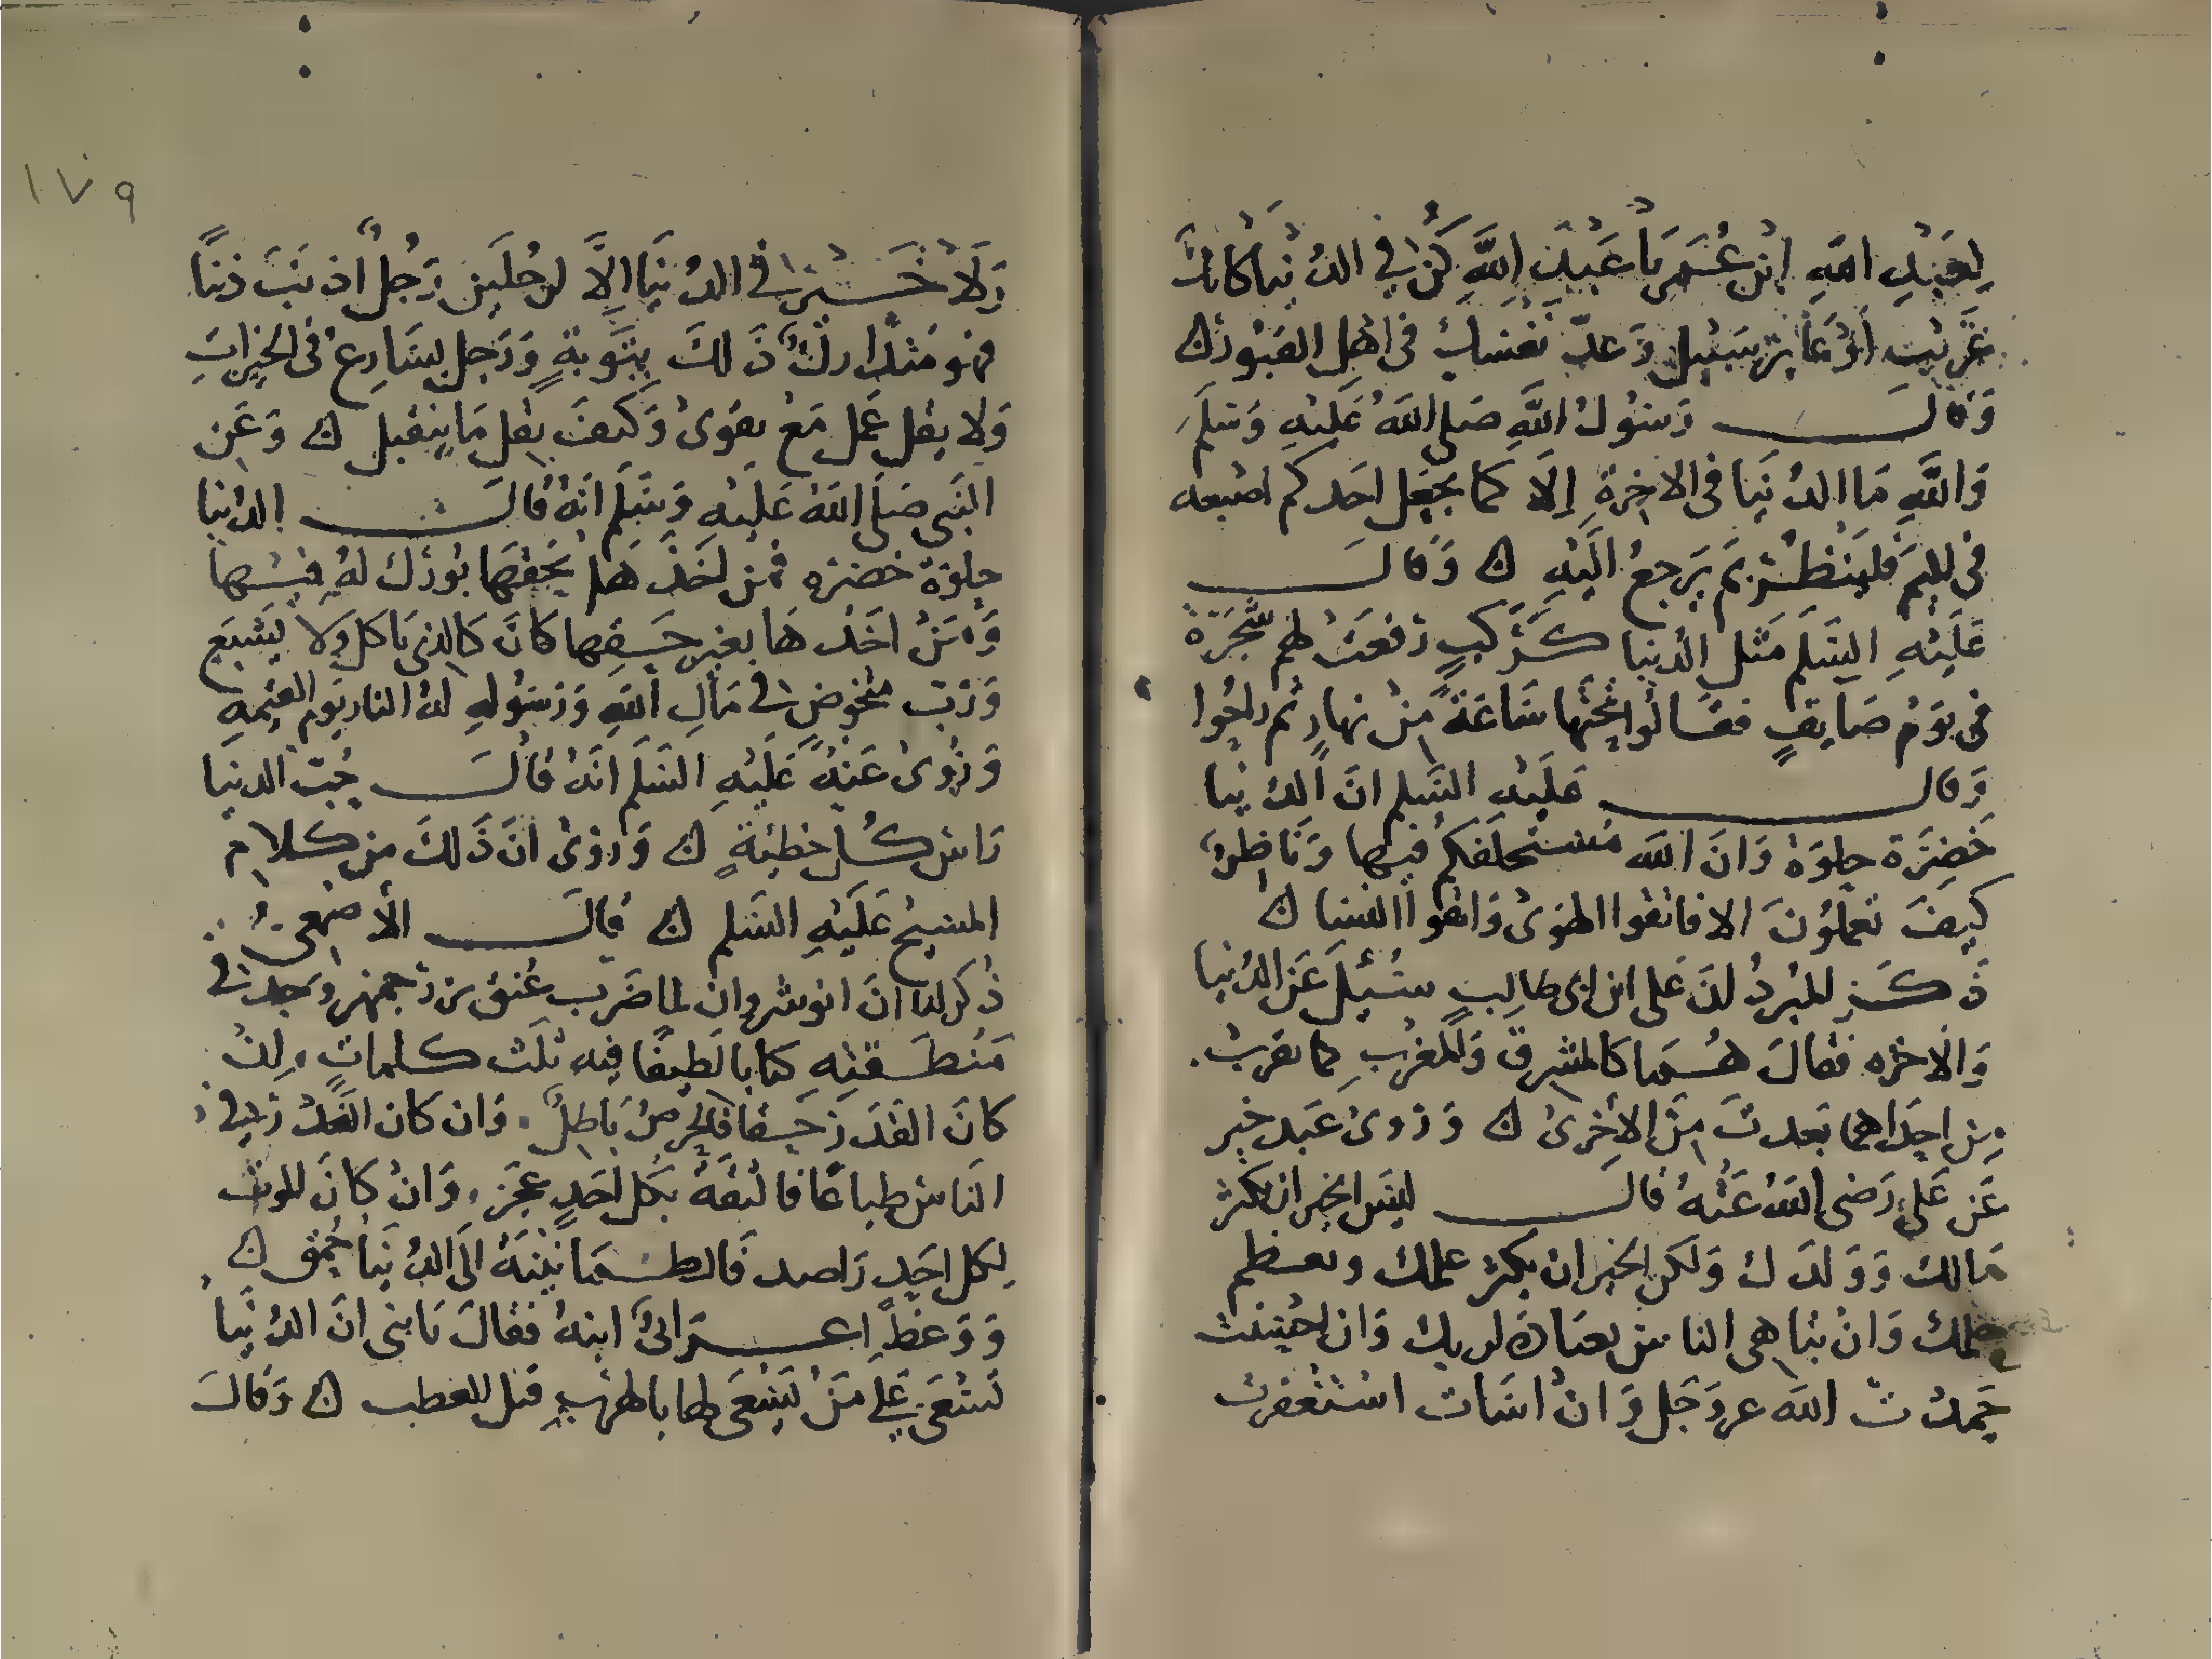 لعبد الله ابن عُمَر يا عَبْدَ اللَّهِ كُنْ في الدُنيا كانك
غَرِيب أوْ عَابر سَبيل وَعدّ نفسَك في اهل القبُور ن
وَقال رَسُول اللَّهِ صَلى اللهُ عَليْهِ وَسَلَم
وَاللَّهِ مَا الدُنيَا في الاخِرةِ إلا كما يَجعَل احَدكم اصبعه
في اليمِّ فليَنْظُرْ بمَ يَرجعُ اليْهِ ن وَقالَ
عَليْهِ السَلم مَثل الدُنيا كرَكبٍ رُفعَتْ لهم شَجَرَة
في يَوْم صَايفٍ فقالُوا تحْتها سَاعَةً مِنْ نهارٍ ثم راحُوا
وَقال عَليْه السَلم انَ الدُنيا
خَضِرَة حلوَة وَانَ اللَه مُستخلفكم فيها وَنَاظِرٌ
كيفَ تعملُونَ الا فاتقوا الهوَى وَاتقوا النسا ن
ذَكَر المُبردُ انَ عَلى ابن ابى طالِبٍ سُئِلَ عَن الدُنيا
وَالآخره فقالَ هُمَا كالمشرق وَالمغربِ كما تقربْت
مِن احِدَاهما بَعدتَ مِنَ الأخِرىَ ن وَرَوىَ عَبد خير
عَن عَلى رَضي اللهُ عَنْهُ قالَ ليسَ الخير ان يكثر
مَالك وَوَلدَك وَلكن الخير ان يكثر عملك ويعظم
حلمك وَانْ تباهى الناس بعبَادة ربك وَان احْسَنت
حَمدْتَ اللَه عز وَجَل وَانْ اسَات استَغفرت
١٧٩
وَلَا خَيْرَ في الدُنيَا إلَّا لرجُلَيْن رَجُلٌ اذنَبَ ذنبًا
فهو مُتدَارِكٌ ذَلكَ بِتَوبةٍ وَرَجل يسَارِعُ في الخيرَاتِ
وَلا يقل عَمل مَعْ تقوىَ وَكيفَ يقل مَا يتقبل ن وَعَن
النَبى صَلى اللهُ عَليْهِ وَسَلم انهُ قالَ الدُنيا
حلوَة خضرَه فمن اخَذَهَا بحَقِهَا بُورك لهُ فيْها
وَمَنْ اخَذهَا بغير حَقِها كانَ كالذى يَاكل وَلا يَشبَع
وَرُبّ مُتخوّض في مَالِ اللهِ وَرَسُولهِ لهُ النار يَوم القيمَهِ
وَرُوىَ عَنْهُ عَليْهِ السَلَم انَهُ قالَ حُبّ الدنيَا
رَاسُ كُل خطيئةٍ ن وَرُوىَ انَ ذَلكَ مِن كلام
المسيح عَليْهِ السَلم ن قالَ الأصمعى
ذُكر لنا انَ انوشروان لما ضَرَب عُنق بزرجمهر وَجدَ في
مَنطَقتِهِ كتابا لطيفًا فِيه ثلَث كلماتٍ، إنْ
كانَ القَدَرُ حَقا فالحِرصُ بَاطِلٌ. وَان كان الغَدْرُ في
النَاس طباعًا فالثقةُ بكُل احَدٍ عجز، وَانْ كانَ الموت
لكل احَدٍ رَاصد فالطمَانينَةُ إلى الدُنيَا حُمق ن
وَوَعظ اعرَابىٌ ابنهُ فقالَ يَابنى انَ الدُنيَا
تَسْعَى عَلى مَنْ يَسْعَى لها بالهرَب قبل العطب ن وَقالَ